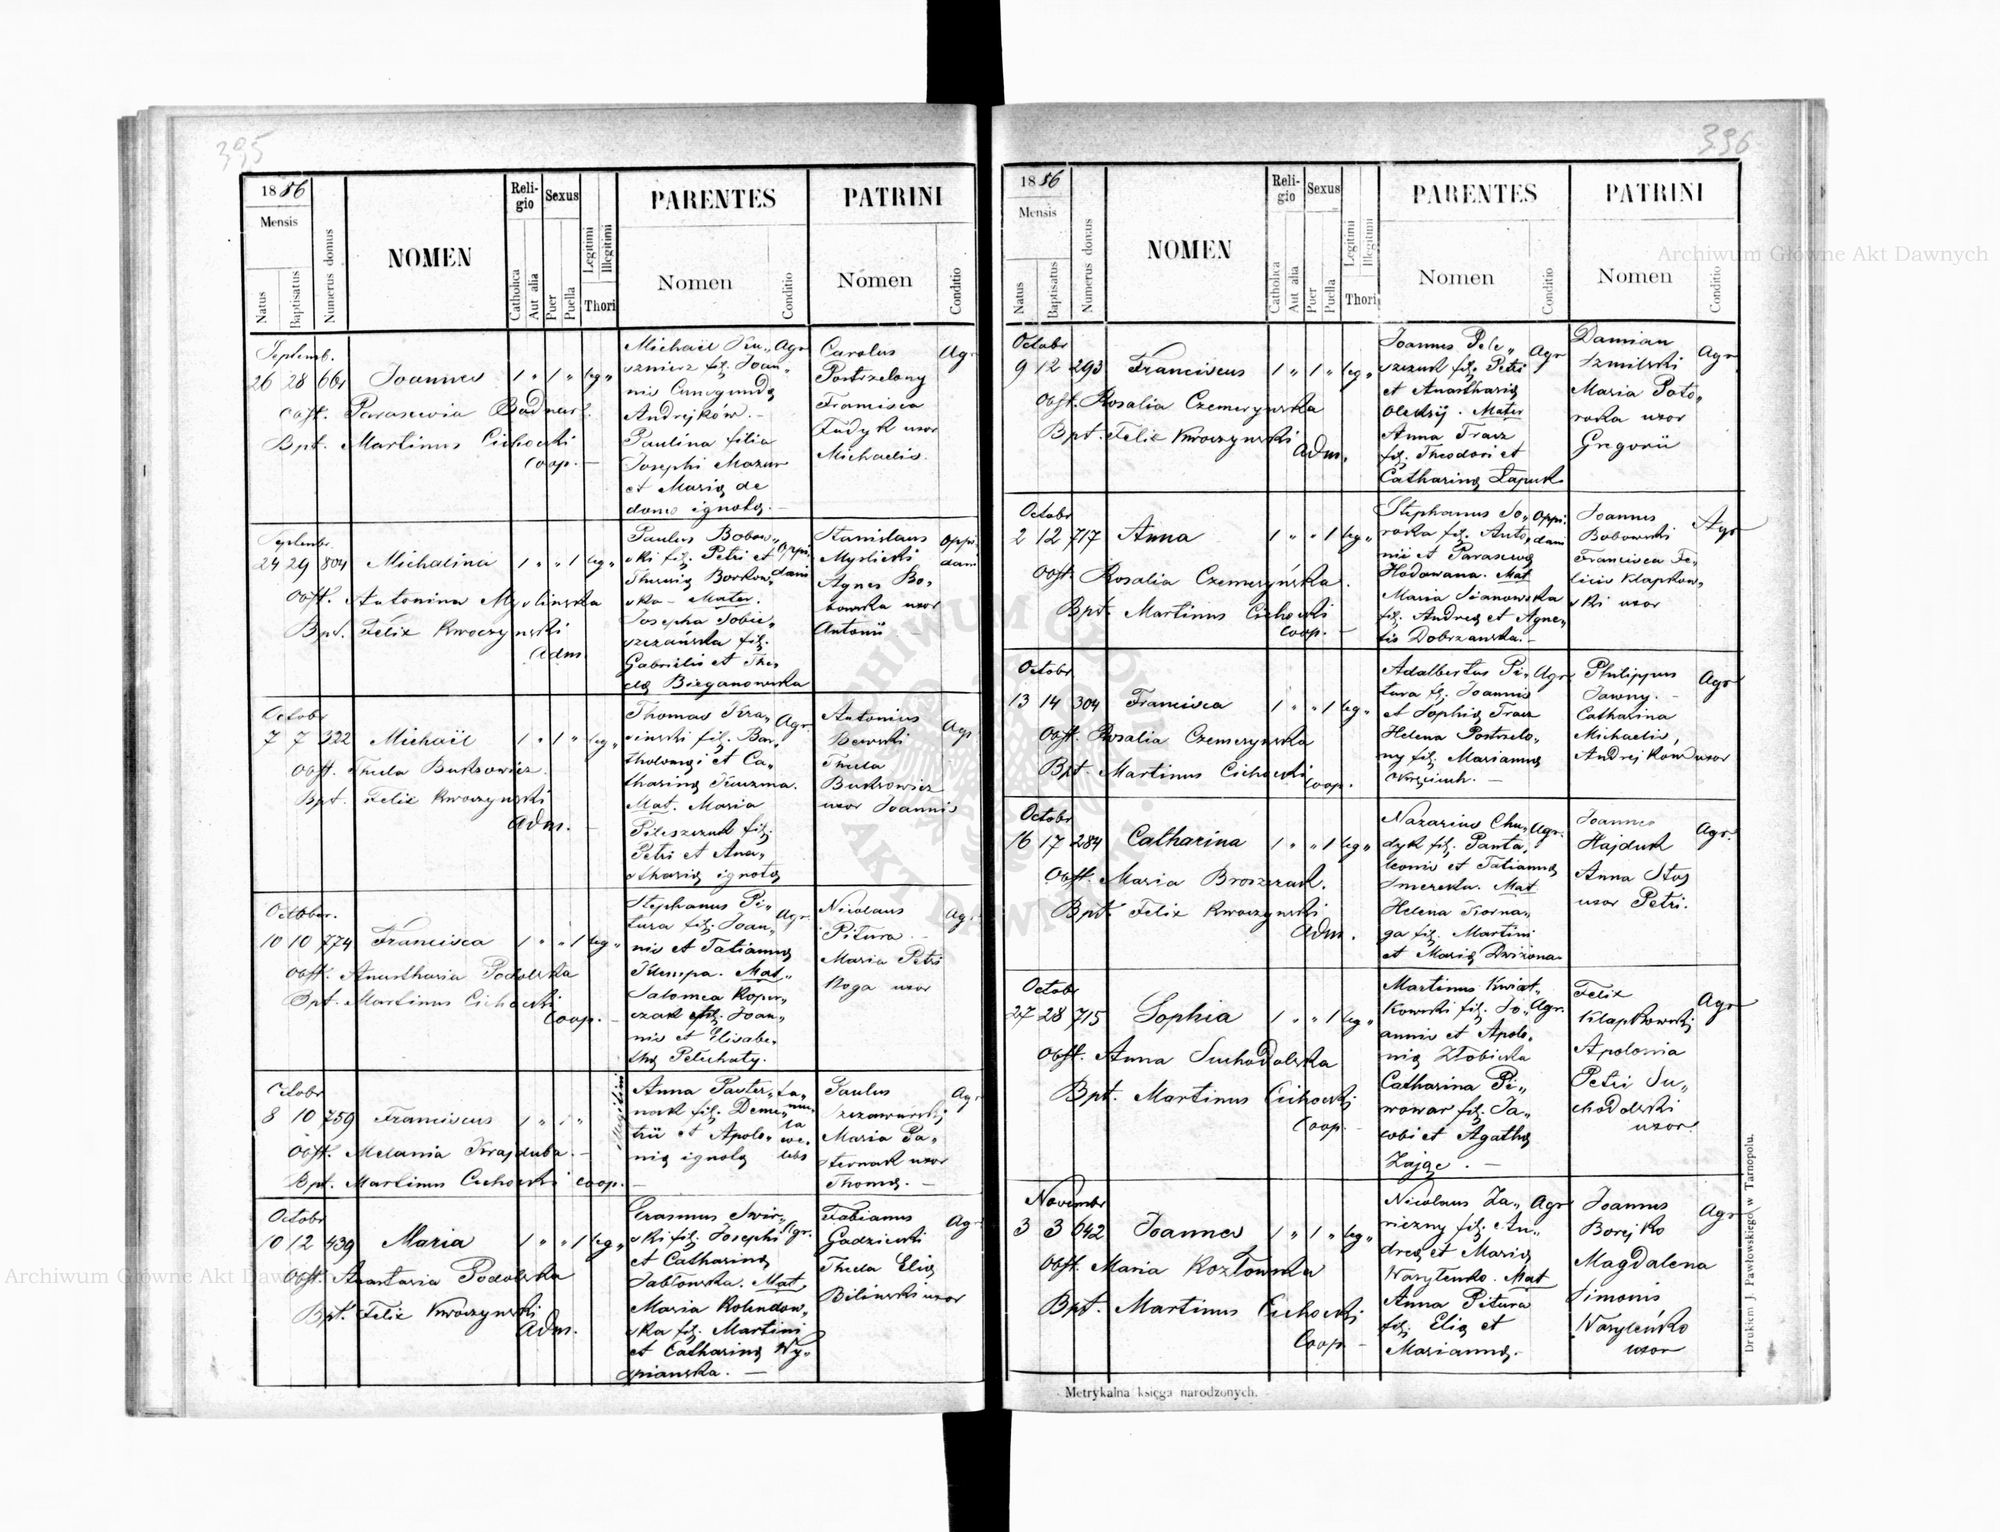 395
1886
Mensis
Natus
Baptisatus
Numerus domus
NOMEN
Religio
Catholica
Aut alia
Sexus
Puer
Puella
Legitimi
Illegitimi
Thori
PARENTES
Nomen
Conditio
PATRINI
Nomen
Conditio
Septemb.
26 28 661 Joannes 1 " 1 " leg "
obst. Parascevia Bodnar
Bpt. Martinus Cichocki
Coop. —
Michaël Ku„ Agr
sznierz fil. Joan„
nis Cunegunda
Andrejków. —
Paulina filia
Josephi Mazur
et Maria de
domo ignota. —
Carolus Agr
Postrzelony
Francisca
Fudyk uxor
Michaelis.
Septembr
24 29 804 Michalina 1 " " 1 leg "
obst. Antonina Myslinska
Bpt. Felix Kwoczynski
Adm.
Paulus Bobow„ Oppi
ski fil. Petri et dani
ska — Mater.
Josepha Sobie„
szczańska fil.
Gabrielis et The
cla Bieganowska
Stanislaus Oppi
Myslicki dani
Agnes Bo„
bowska uxor
Antonii
Octobr
7 7 322 Michaël 1 " 1 " leg "
obst. Thecla Buksowicz
Bpt. Felix Kwoczynski
Adm. —
Thomas Kra„ Agr.
sinski fil. Bar„
tholomaei et Ca„
tharina Kuuzma.
Mat. Maria
Pileszczuk fil.
Petri et Ana„
stharia ignota
Antonius Agr
Bewski
Thecla
Buksowicz
uxor Joannis
October.
10 10 774 Francisca 1 " " 1 leg "
obst. Anastharia Podolska
Bpt. Martinus Cichocki
Coop. —
Stephanus Pi„
tura fil. Joan„ Agr.
nis et Tatianna
Klimpa. Mat„
Salomea Koper„
czak fil. Joan„
nis et Elisabe„
tha Pelechaty.
Nicolaus Agr
Pitura —
Maria Petri
Koga uxor
Octobr
8 10 759 Franciscus 1 " 1 " illegitimi
obst. Melania Krajduba. —
Bpt. Martinus Cichocki Coop. —
Anna Paster„
nak fil. Deme„
trii et Apolo„
nia ignota
Paulus Agr
Maria Pa„
sternak uxor
Thoma. —
Octobr
10 12 439 Maria 1 " " 1 leg "
obst. Anastasia Podolska
Bpt. Felix Kwoczynski
Adm.
Erasmus Swir„
ski fil. Josephi Agr.
et Catharina
Jabłonska. Mat.
Maria Rolendow„
ska fil. Martini
et Catharina Wy„
spianska. —
Fabianus Agr
Gadzicki
Thecla Elia
Bilinski uxor
396
1886
Mensis
Natus
Baptisatus
Numerus domus
NOMEN
Religio
Catholica
Aut alia
Sexus
Puer
Puella
Legitimi
Illegitimi
Thori
PARENTES
Nomen
Conditio
PATRINI
Nomen
Conditio
Octobr
9 12 293 Franciscus 1 " 1 " leg "
obst. Rosalia Czemerynska
Bpt. Felix Kwoczynski
Adm.
Joannes Pele„ Agr
szczuk fil. Petri
et Anastharia
Oleksij. Mater
Anna Tracz
fil. Theodori et
Catharina Łapuk
Damian
Szmilski Agr
Maria Poto„
roka uxor
Gregorii
Octobr
2 12 717 Anna 1 " " 1 leg "
obst. Rosalia Czemeryńska.
Bpt. Martinus Cichocki
Coop. —
Stephanus So„ Oppi
roka fil. Anto„ dani
nii et Parasceva
Hodowana. Mat
Maria Sianowska
fil. Andrea et Agne„
tis Dobrzanska. —
Joannes Agr
Bobowski
Francisca Fe„
licis Klapkow„
ski uxor
Octobr
13 14 304 Francisca 1 " " 1 leg "
obst. Rosalia Czemerynska
Bpt. Martinus Cichocki
Coop.
Adalbertus Pi„ Agr
tura fil. Joannis
et Sophia Tracz
Helena Postrzelo„
ny fil. Marianna
Philippus Agr
Jawny. —
Catharina
Michaelis
Andrejków uxor
Octobr
16 17 284 Catharina 1 " " 1 leg "
obst. Maria Broszczak.
Bpt. Felix Kwoczynski
Adm.
Nazarius Chu„ Agr.
dyk fil. Panta„
leonis et Tatianna
Smereka. Mat
Helena Korna„
ga fil. Martini
et Maria Dwiżona
Joannes Agr.
Hajduk
Anna Stos
uxor Petri.
Octobr
27 28 715 Sophia 1 " " 1 leg "
obst. Anna Suchodolska
Bpt. Martinus Cichocki
Coop. —
Martinus Kwiat„
kowski fil. Jo„ Agr.
annis et Apolo„
nia Złobicka
Catharina Pi„
wowar fil. Ja„
cobi et Agatha
Zając. —
Felix Agr
Klapkowski
Apolonia
Petri Su„
chodolski
uxor.
Novembr
3 3 642 Joannes 1 " 1 " leg "
obst. Maria Kozłowska
Bpt. Martinus Cichocki
Coop. —
Nicolaus Za„ Agr
riczny fil. An„
drea et Maria
Wasylenko. Mat
Anna Pitura
fil. Elia et
Marianna. —
Joannes Agr
Borejko
Magdalena
Simonis
Wasyleńko
uxor
Metrykalna księga narodzonych.
Drukiem J. Pawłowskiego w Tarnopolu.
Archiwum Główne Akt Dawnych
Archiwum Główne Akt Dawnych
ARCHIWUM GŁÓWNE AKT DAWNYCH